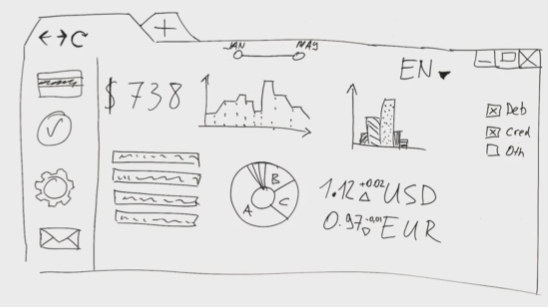 JAN MAY
EN
$ 738
Deb
Cred
Oth
B
A C
1.12 +0.02 USD
0.97 -0.01 EUR